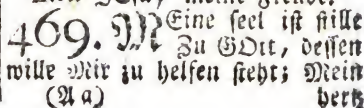 469. MEine seel ist stille
Zu GOtt, dessen
wille Mir zu helfen steht; Mein
(A a) hertz